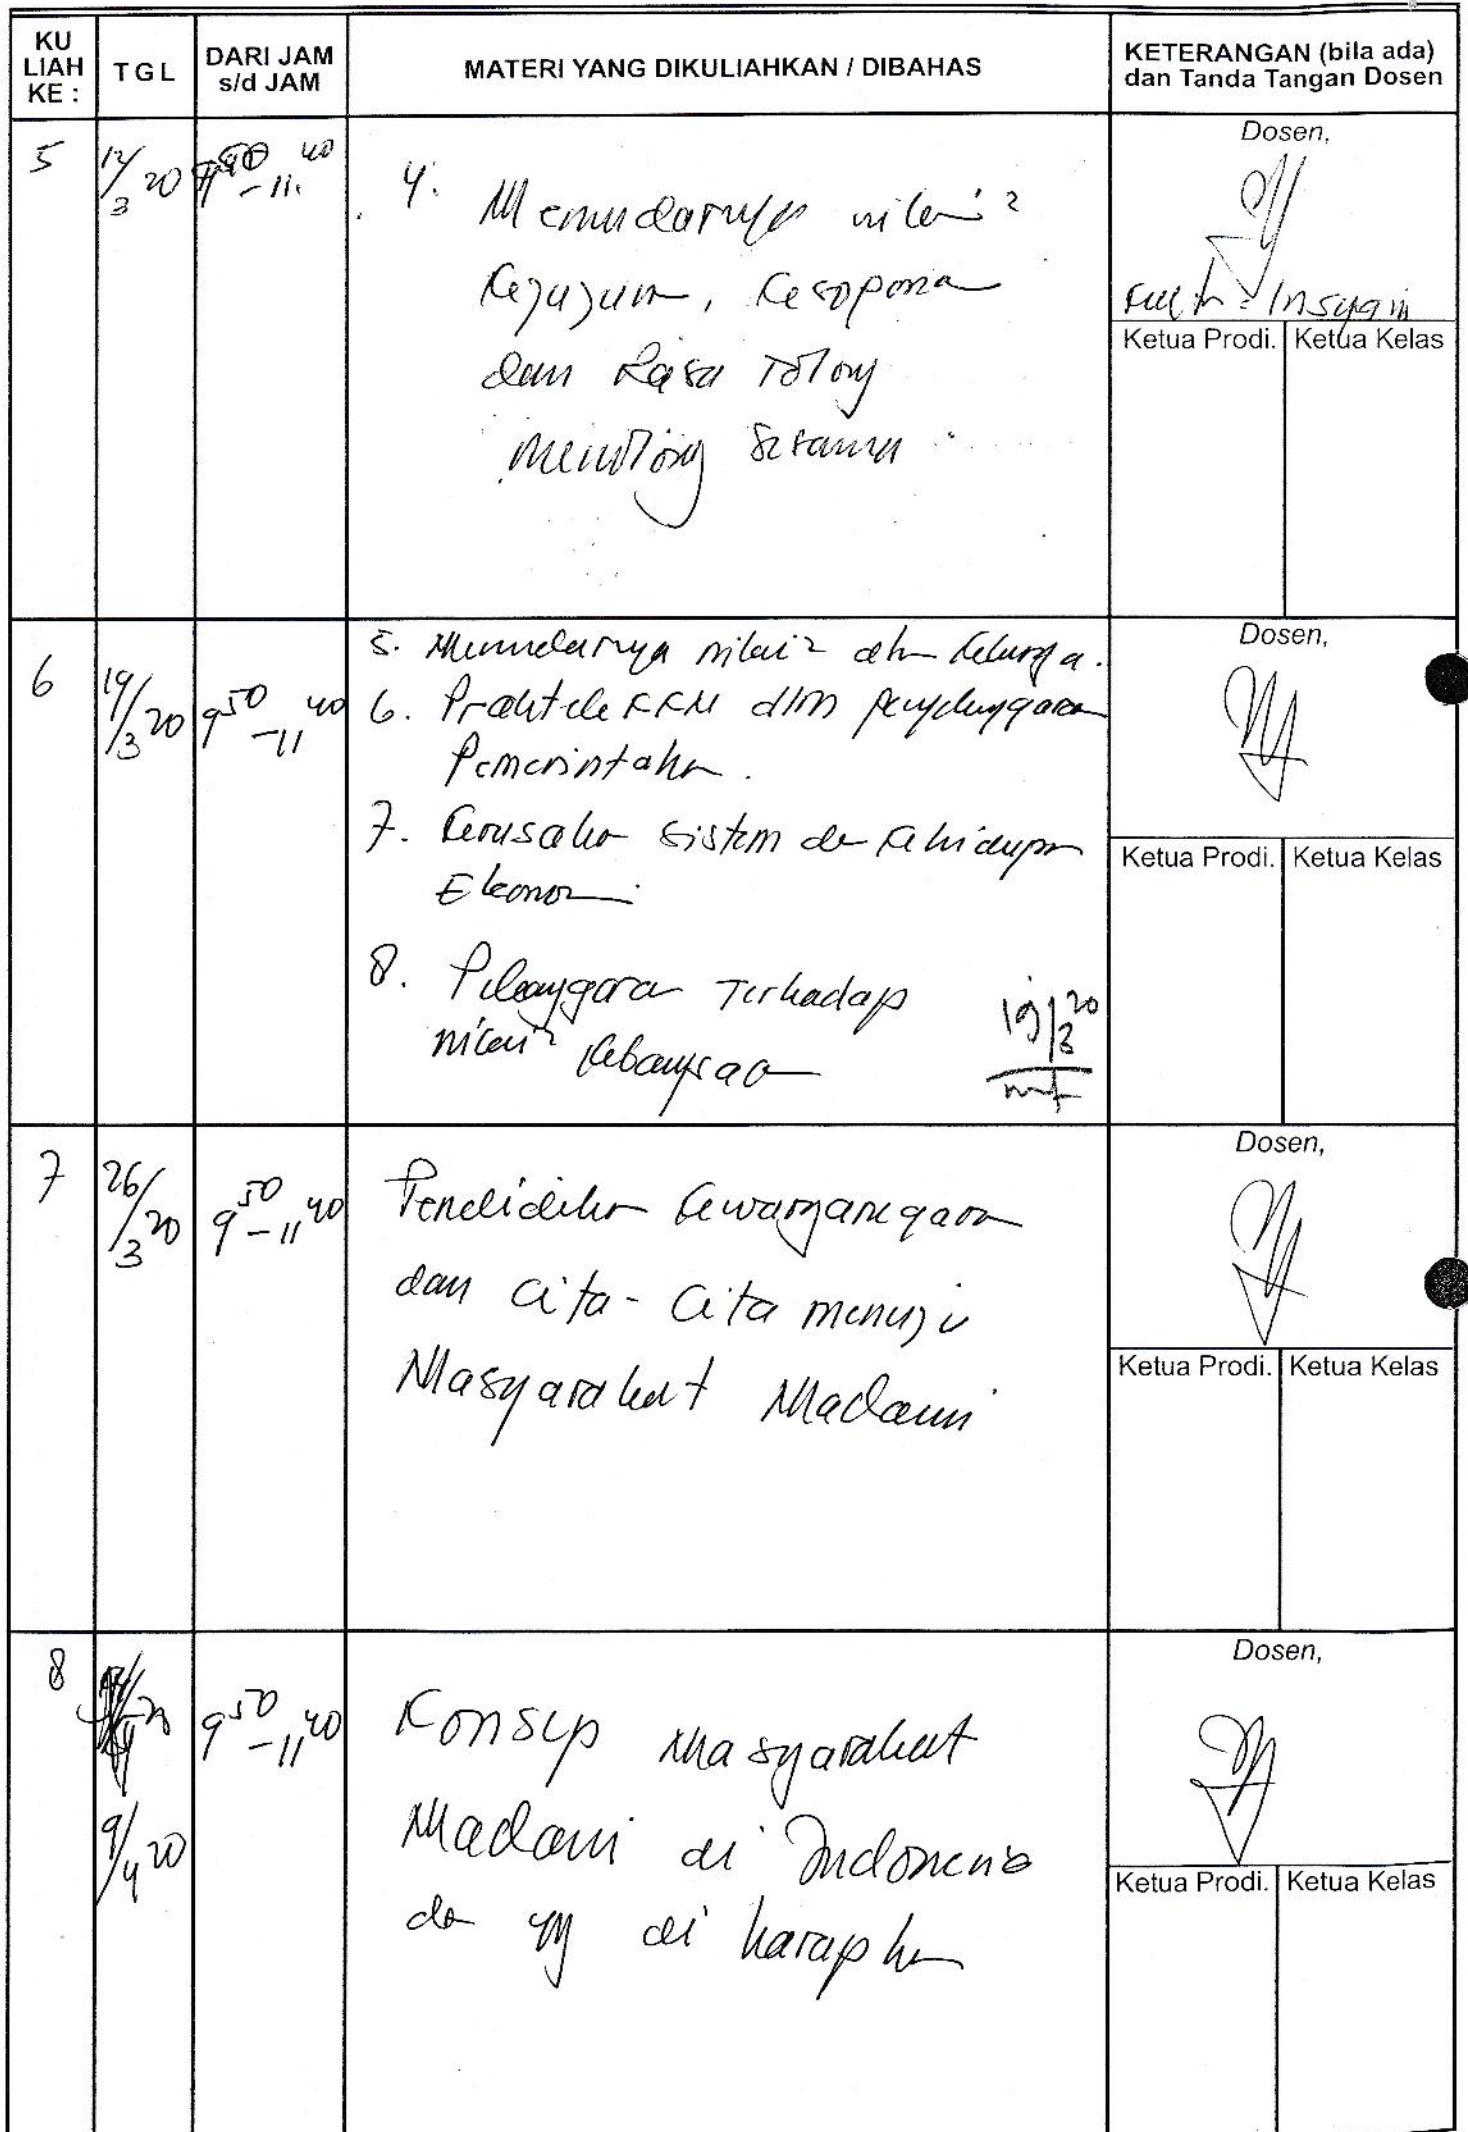 KU LIAH KE : TGL DARI JAM s/d JAM MATERI YANG DIKULIAHKAN / DIBAHAS KETERANGAN (bila ada) dan Tanda Tangan Dosen
5 12/3 20 9 50 - 11. 40
4. Memudarnya nilai 2
Kejujuran, Kesopanan
dan Rasa Tolong
menolong Sesama
Dosen,
Ketua Prodi. Ketua Kelas
6 19/3 20 9 50 - 11 40
5. Memudarnya nilai 2 dlm Keluarga.
6. Praktek KKN dlm penyelenggaraan
Pemerintahan.
7. Kerusakan sistem dan Kehidupan
Ekonomi
8. Pelanggaran Terhadap
nilai 2 Kebangsaan
19/3 20
Dosen,
Ketua Prodi. Ketua Kelas
7 26/3 20 9 50 - 11 40
Pendidikan Kewarganegaraan
dan Cita - Cita menuju
Masyarakat Madani
Dosen,
Ketua Prodi. Ketua Kelas
8 9/4 20 9 50 - 11 40
Konsep Masyarakat
Madani di Indonesia
dan yg di harapkan
Dosen,
Ketua Prodi. Ketua Kelas